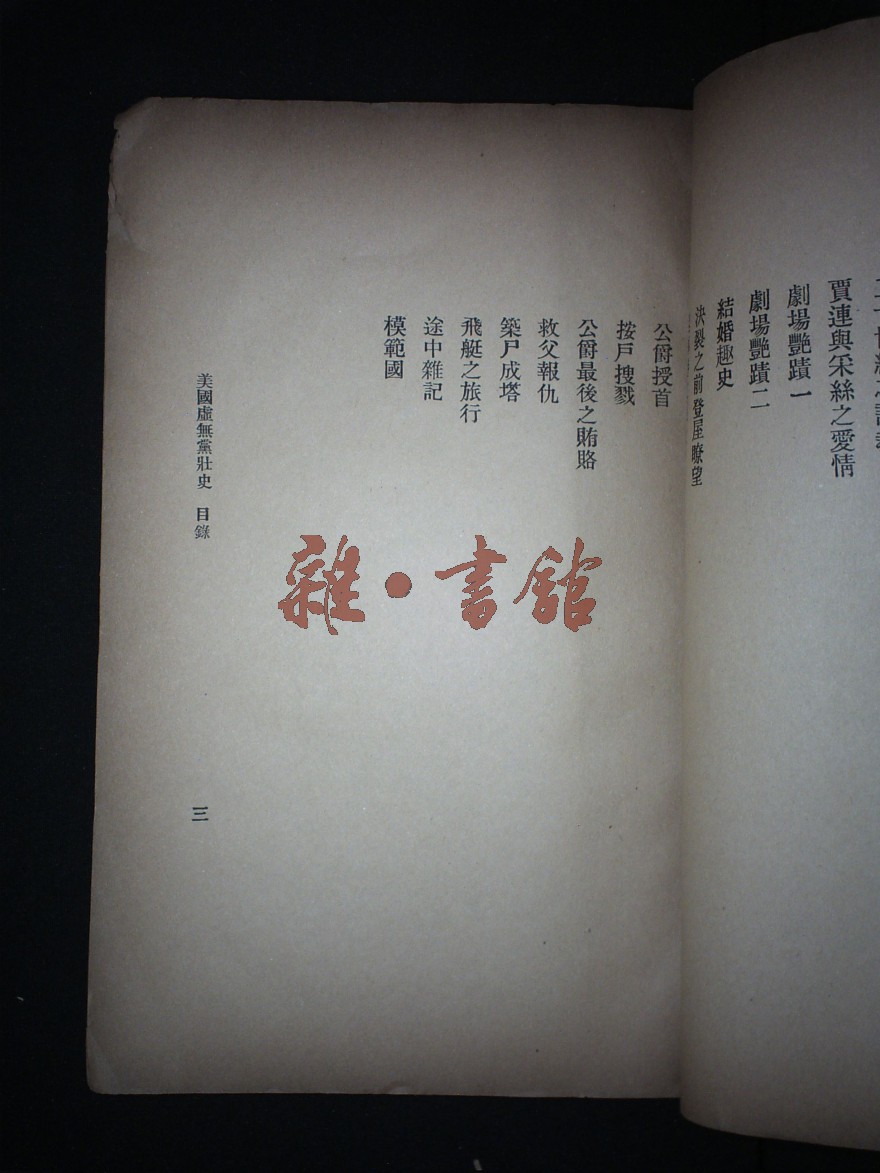 賈連與采絲之愛情
劇場艷蹟一
劇場艷蹟二
結婚趣史
決裂之前登屋瞭望
公爵授首
按戶搜戮
公爵最後之賄賂
救父報仇
築尸成塔
飛艇之旅行
途中雜記
模範國
美國虛無黨壯史 目錄
三
雜·書館